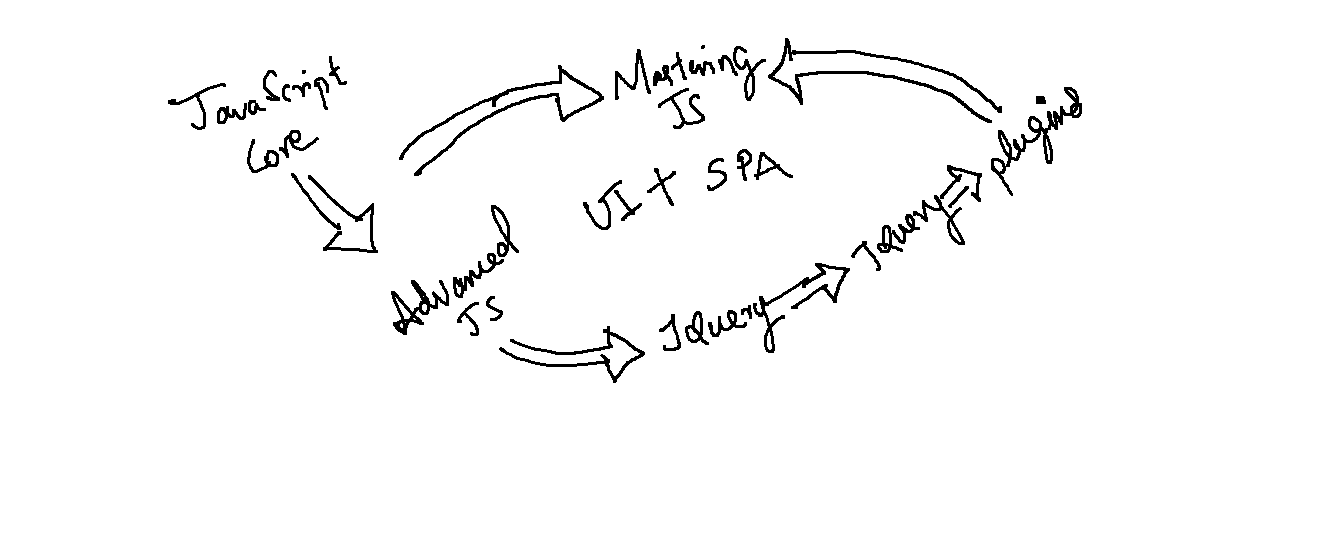 JavaScript
Core
Mastering
JS
UI + SPA
Advanced
JS
JQuery
JQuery
plugins